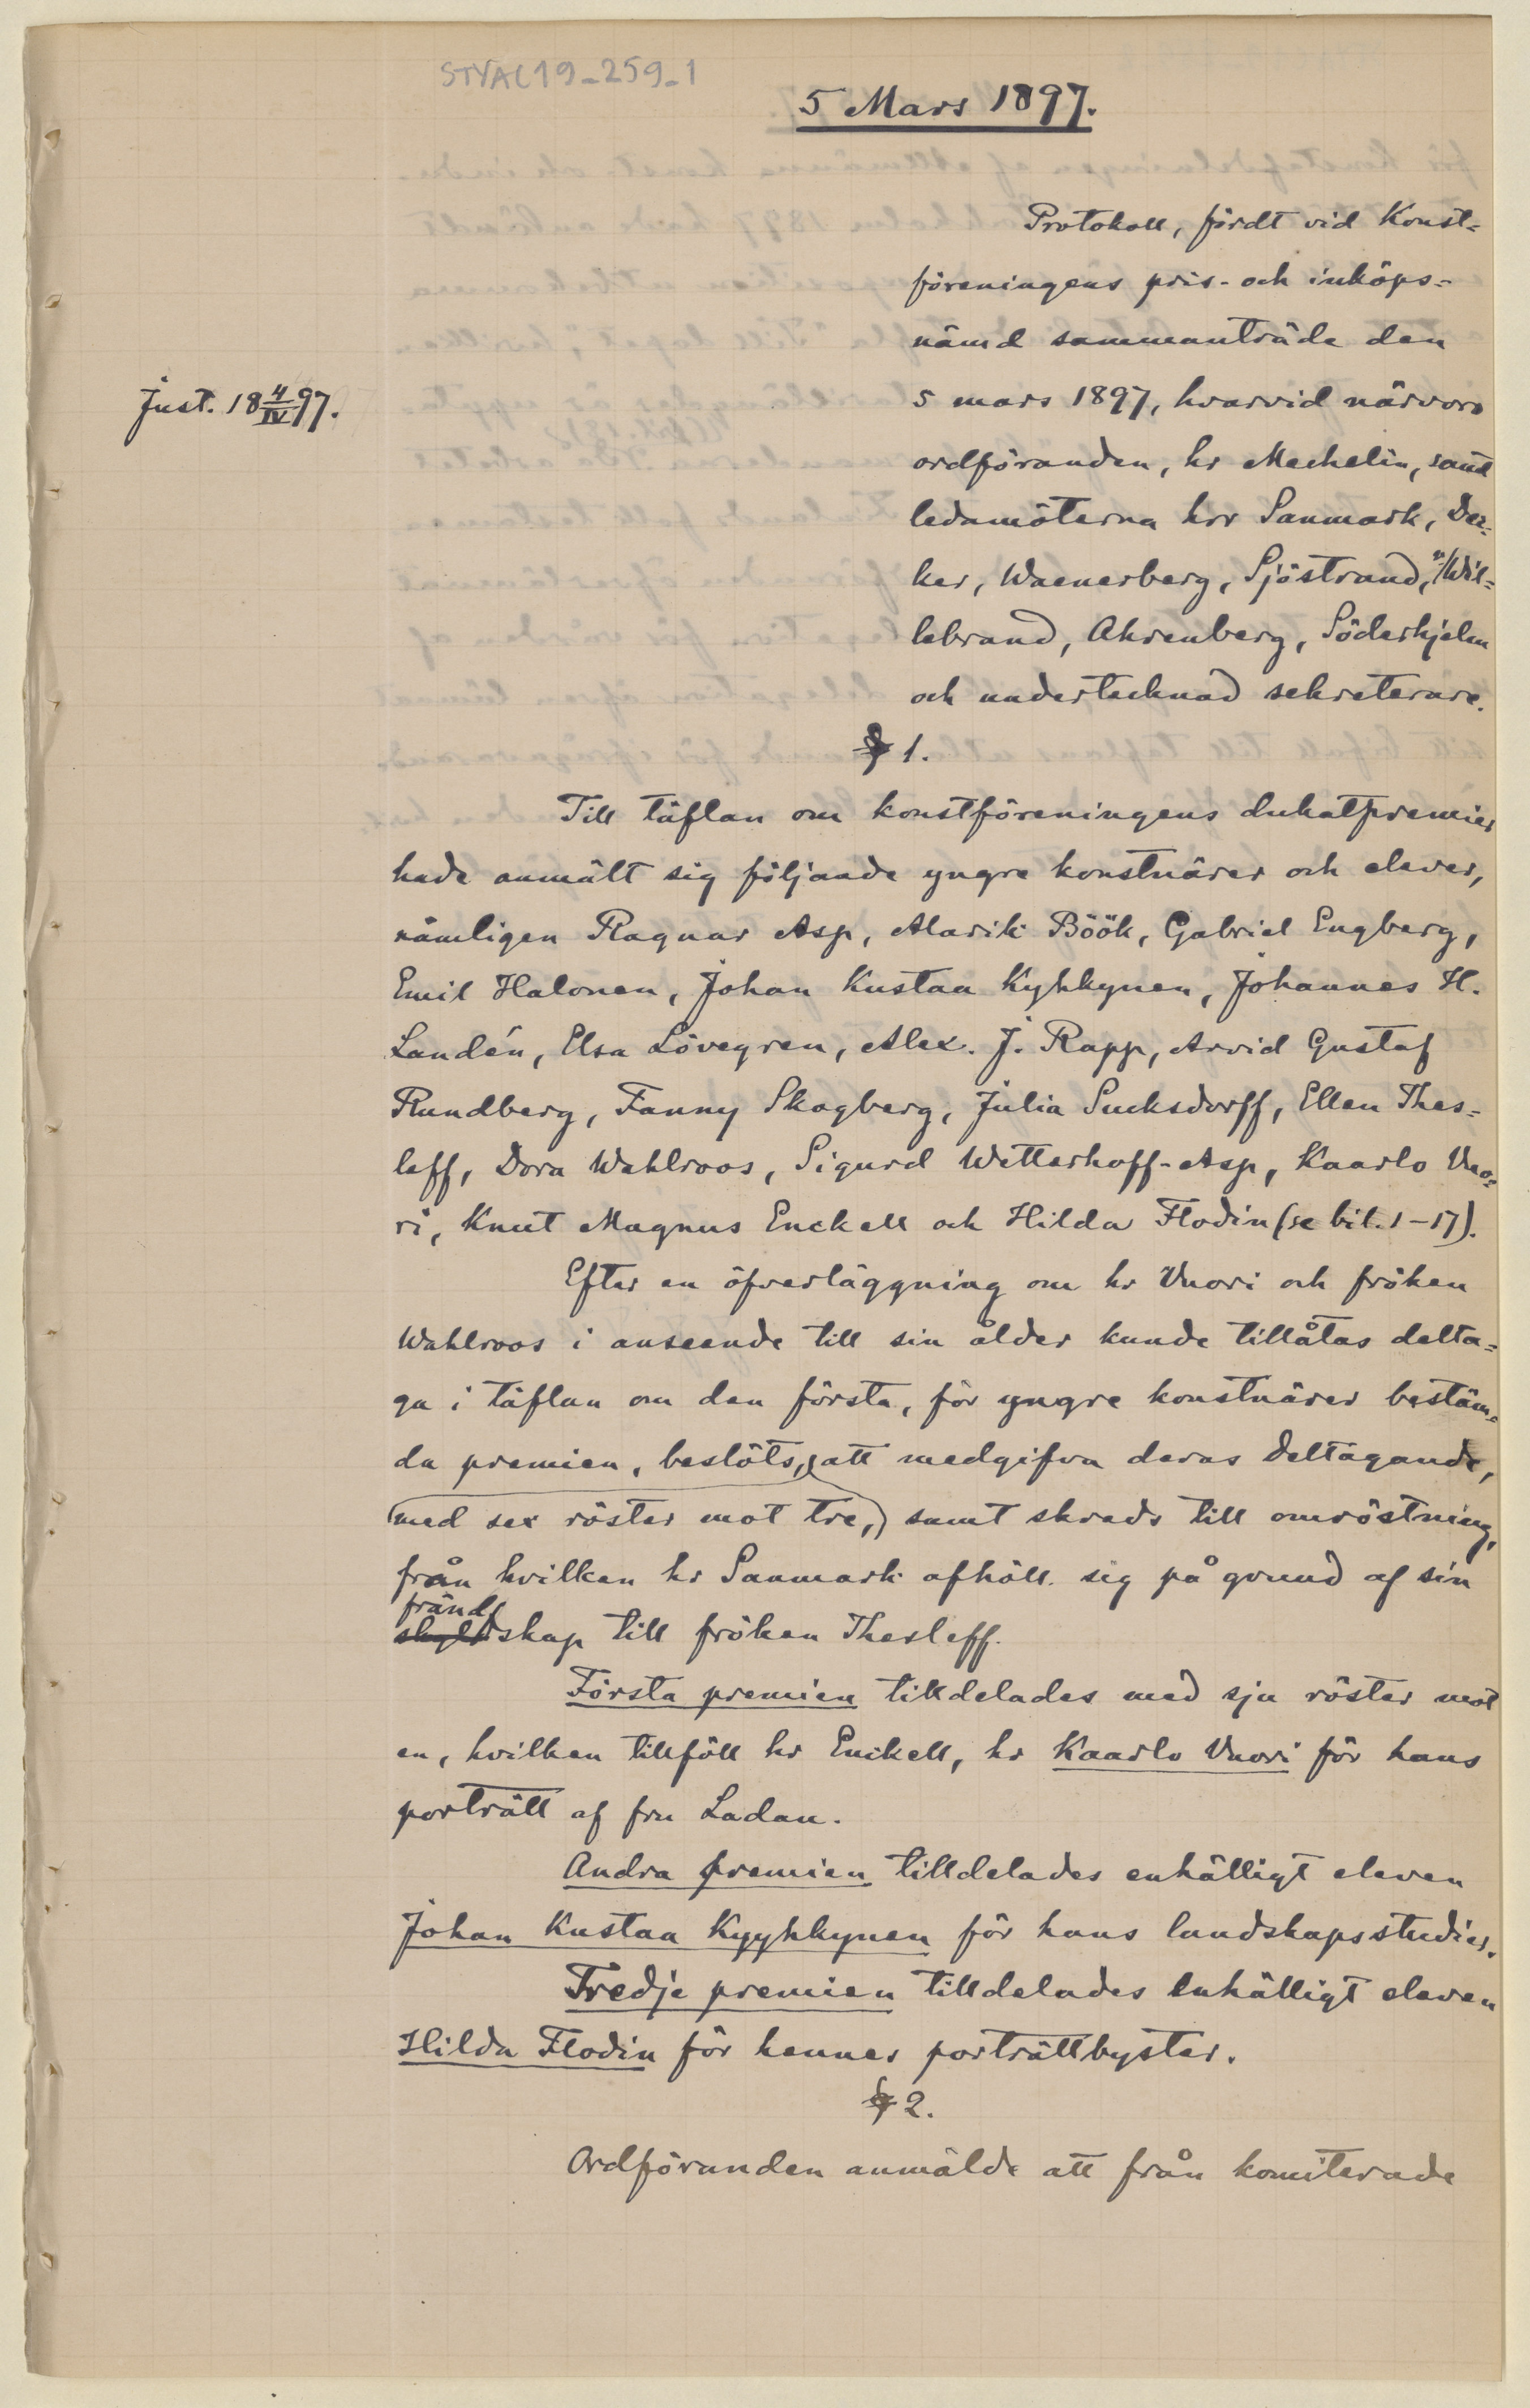 STYAL19_259_1
5 Mars 1897.
Protokoll, fördt vid Konst-
föreningens pris- och inköps-
nämd sammanträde den
Just. 18 4/IV 97.
5 mars 1897, hvarvid närvoro
ordföranden, hr Mechelin, samt
ledamöterna hrr Sanmark, Dec-
ker, Waenerberg, Sjöstrand, v/Wil-
lebrand, Ahrenberg, Söderhjelm
och undertecknad sekreterare.
§ 1.
Till täflan om konstföreningens dukatpremier
hade anmält sig följande yngre konstnärer och elever,
nämligen Ragnar Asp, Alarik Böök, Gabriel Engberg,
Emil Halonen, Johan Kustaa Kyhkynen, Johannes H.
Landén, Elsa Lövegren, Alex. J. Rapp, Arvid Gustaf
Rundberg, Fanny Skogberg, Julia Sucksdorff, Ellen Thes-
leff, Dora Wahlroos, Sigurd Wetterhoff-Asp, Kaarlo Vuo-
ri, Knut Magnus Enckell och Hilda Flodin (se bil. 1-17).
Efter en öfverläggning om hr Vuori och fröken
Wahlroos i anseende till sin ålder kunde tillåtas delta-
ga i täflan om den första, för yngre konstnärer bestäm-
da premien, beslöts, att medgifva deras deltagande,
(med sex röster mot tre,) samt skreds till omröstning,
från hvilken hr Sanmark afhöll sig på grund af sin
fränd
skyldskap till fröken Thesleff.
Första premien tilldelades med sju röster mot
en, hvilken tillföll hr Enckell, hr Kaarlo Vuori för hans
porträtt af fru Ladau.
Andra premien tilldelades enhälligt eleven
Johan Kustaa Kyyhkynen för hans landskapsstudier.
Tredje premien tilldelades enhälligt eleven
Hilda Flodin för hennes porträttbyster.
§ 2.
Ordföranden anmälde att från komiterade